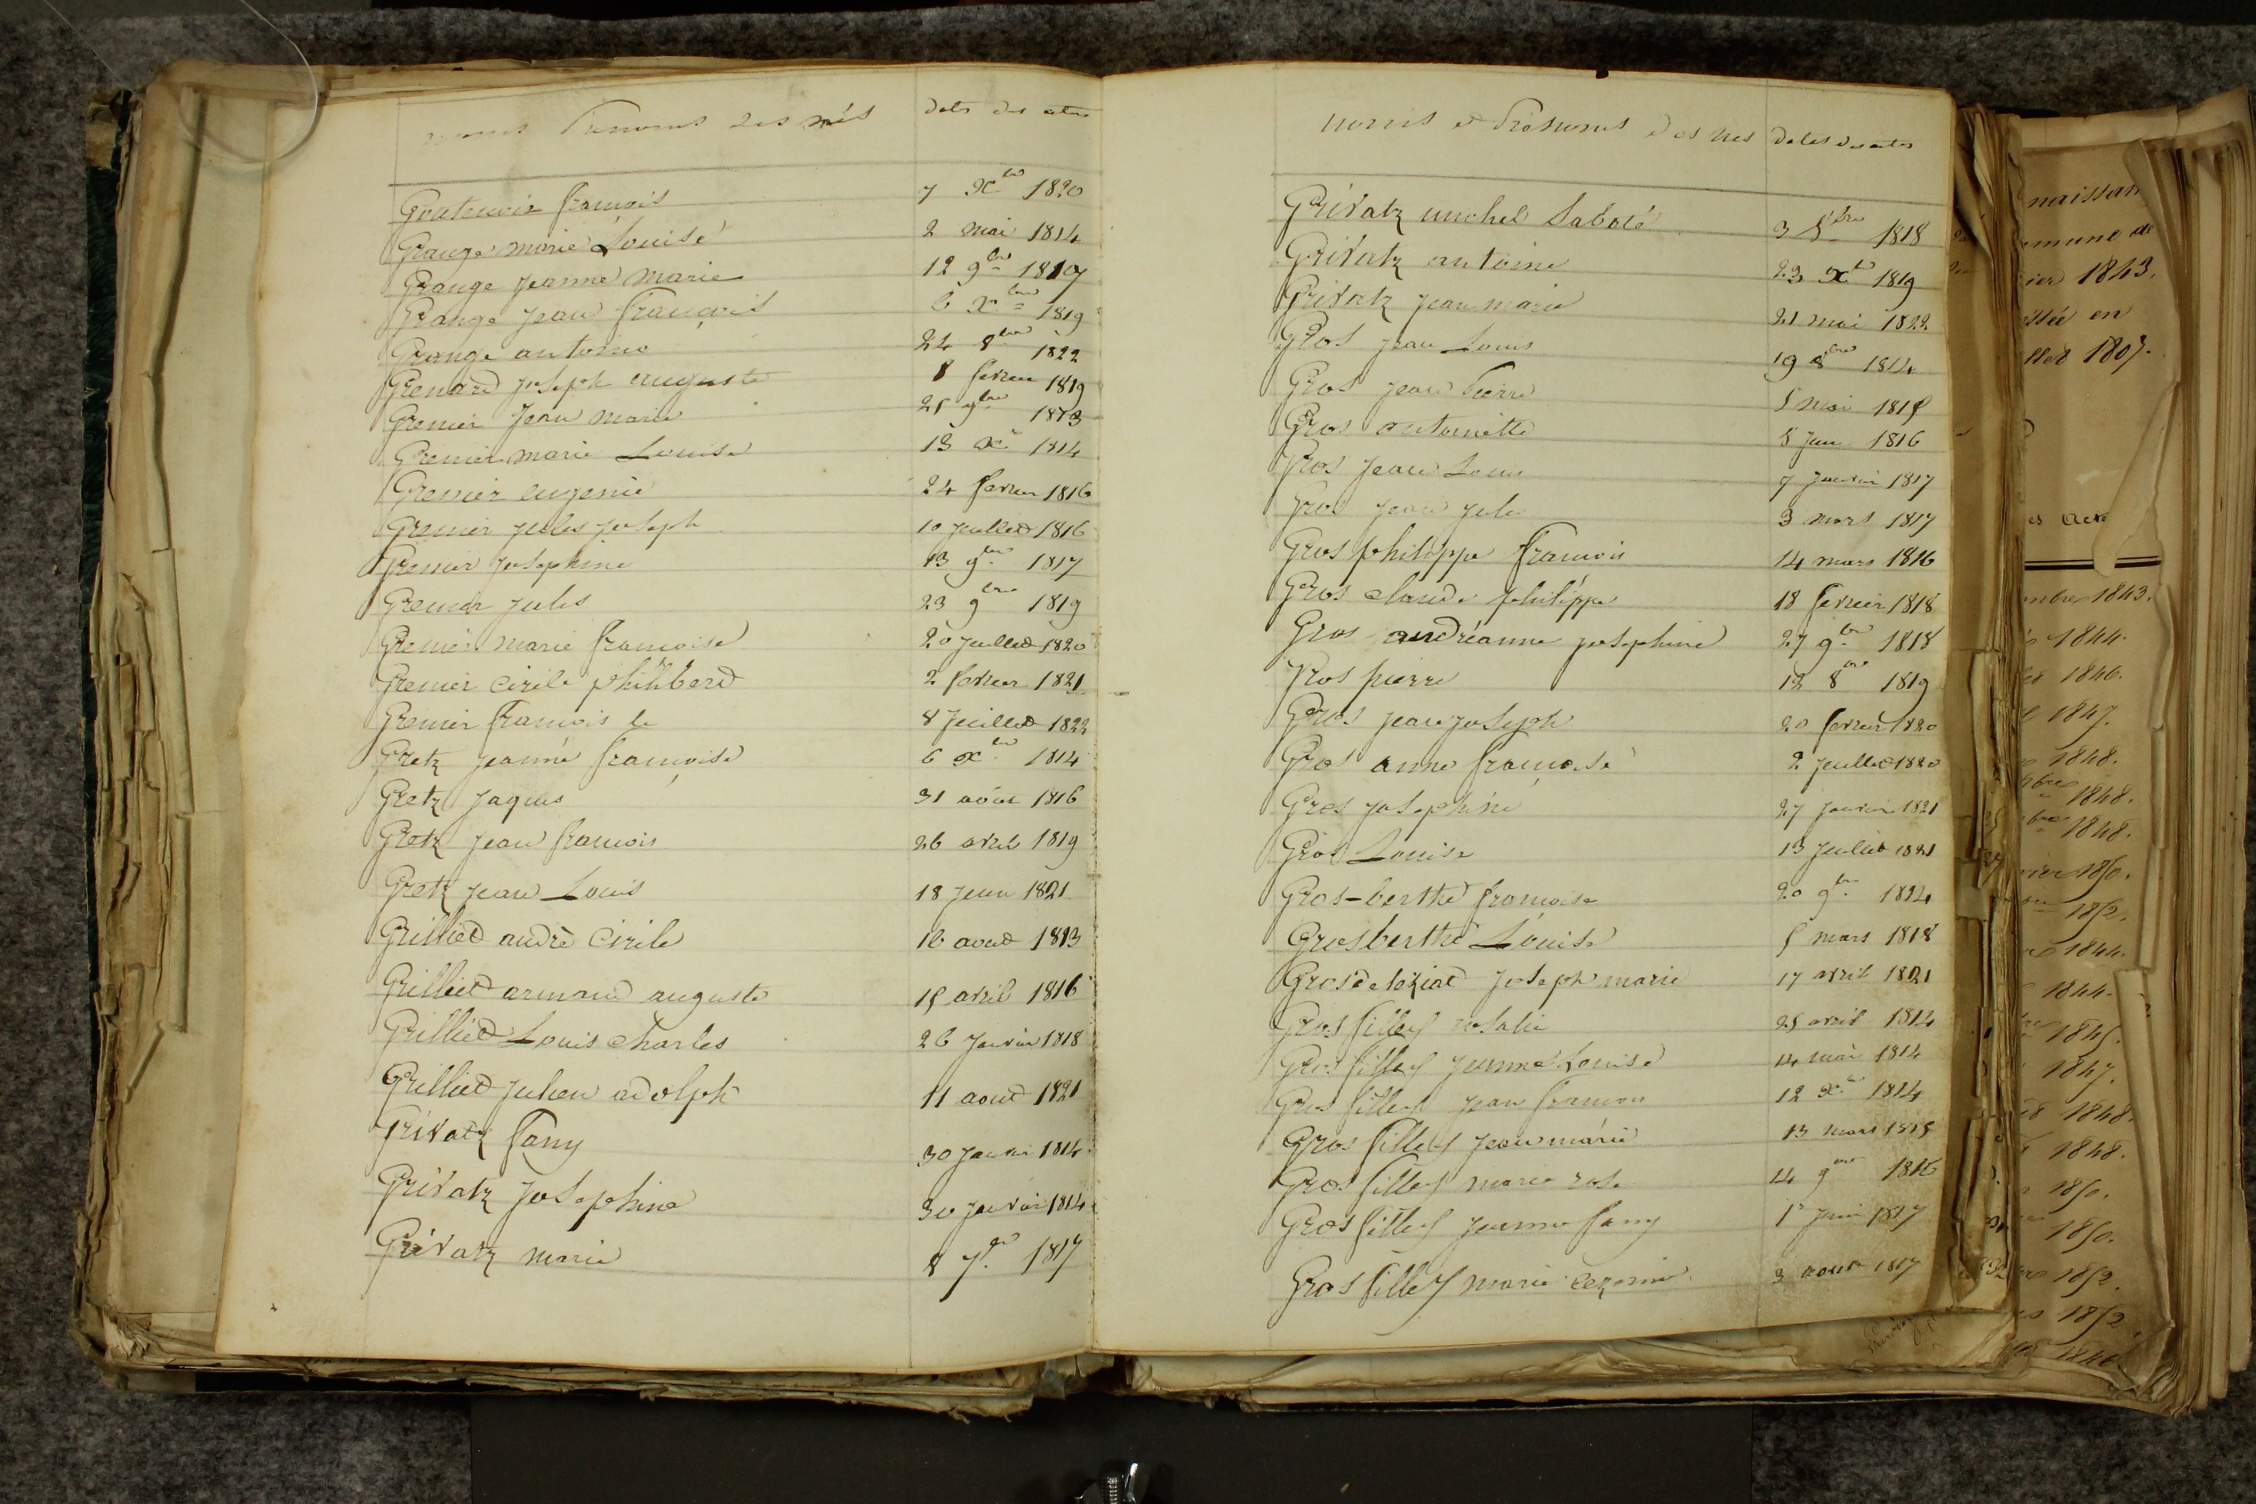 noms Prenoms des nés dates des actes
Goutenoir francois 7 xbre 1820
Grange marie Louise 2 mai 1814
Grange jeanne marie 12 9bre 1819
Grange jean françois 6 xbre 1819
Grange antoine 24 8bre 1822
Grenard joseph auguste 8 fevrier 1819
Grenier Jean marie 25 9bre 1813
Grenier marie Louise 13 xbre 1814
Grenier eugenie 24 fevrier 1816
Grenier jules joseph 10 juillet 1816
Grenier josephine 13 9bre 1817
Grenier jules 23 9bre 1819
Grenier marie francoise 20 juillet 1820
Grenier Cirile philibert 2 fevrier 1821
Grenier francois 8 juillet 1822
Gretz jeanne francoise 6 xbre 1814
Gretz jaques 31 août 1816
Gretz jean francois 26 avril 1819
Gretz jean Louis 18 juin 1821
Grilliet andrè Cirile 16 aout 1813
Grilliet armand auguste 15 avril 1816
Grilliet Louis charles 26 janvier 1818
Grilliet julien adolph 11 aout 1821
Grivatz fany 30 janvier 1814
Grivatz josephine 30 janvier 1814
Grivatz marie 8 7bre 1817
noms et Prenoms des nes dates des actes
Grivatz michel 3 8bre 1818
Grivatz antoine 23 xbre 1819
Grivatz jean marie 21 mai 1822
Gros jean Louis 19 8bre 1814
Gros jean Pierre 5 mai 1815
Gros antoinette 8 juin 1816
Gros jean Louis 7 janvier 1817
Gros jean jules 3 mars 1817
Gros philippe francois 14 mars 1816
Gros claude philippe 18 fevrier 1818
Gros andréanne josephine 27 9bre 1818
Gros pierre 12 8bre 1819
Gros jean joseph 20 fevrier 1820
Gros anne francoise 2 juillet 1820
Gros josephine 27 janvier 1821
Gros Louise 13 juillet 1821
Gros-berthe francoise 20 9bre 1814
Grosberthe Louise 5 mars 1818
Grosdeloziat joseph marie 17 avril 1821
Grosfilley rosalie 25 avril 1814
Grosfilley jeanne Louise 14 mai 1814
Gros filley jean francois 12 xbre 1814
Gros filley jean marie 13 mars 1815
Gros filley marie rose 14 9bre 1816
Gros filley jeanne fany 1er juin 1817
Gros filley marie 3 aout 1817
1843.
en
1807.
1843.
1844.
1846.
1847.
1848.
1848.
1848.
1850.
1852.
1844.
1844.
1845.
1847.
1848.
1848.
1850.
1850.
1852.
1852